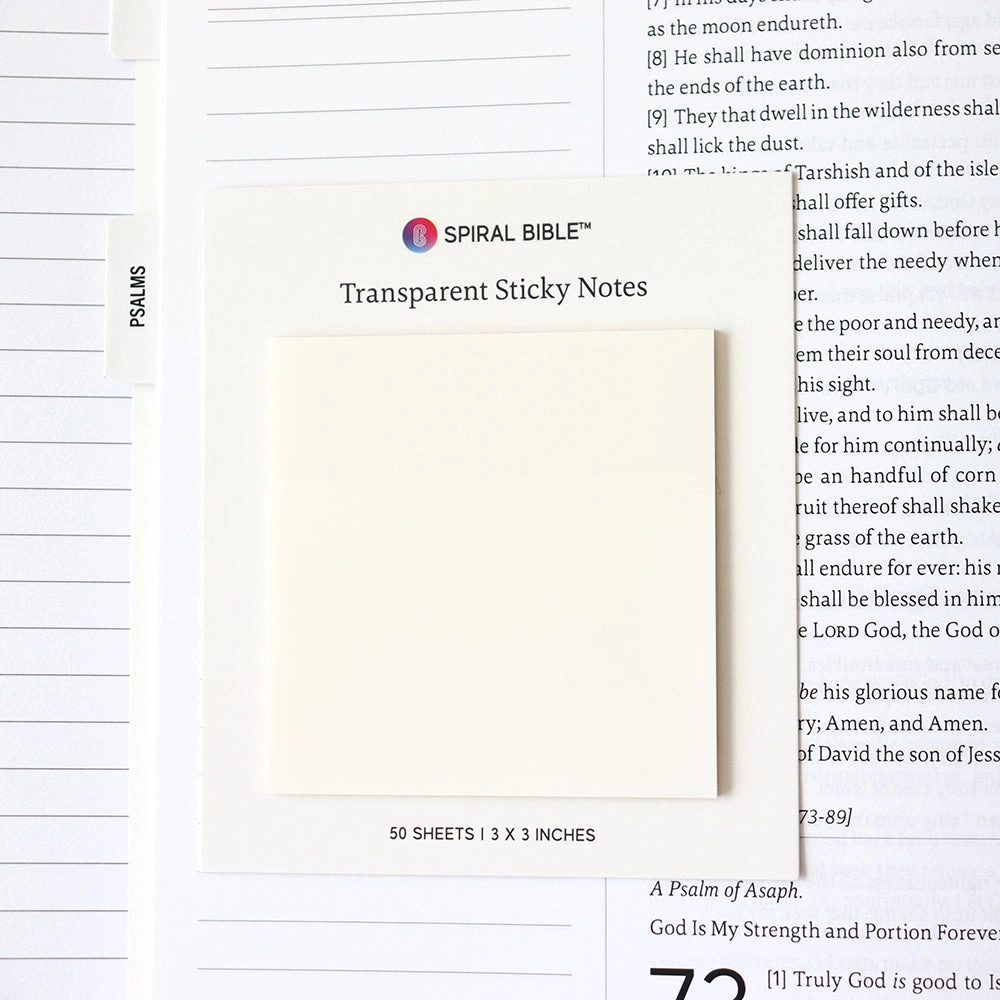 [7] In his days
as the moon endureth.
[8] He shall have dominion also from
the ends of the earth.
[9] They that dwell in the wilderness
shall lick the dust.
[10] The kings of Tarshish and of the
shall offer gifts.
shall fall down before
deliver the needy when
the poor and needy,
their soul from
his sight.
live, and to him shall
for him continually;
an handful of corn
thereof shall shake
grass of the earth.
endure for ever: his
shall be blessed in him
LORD God, the God
be his glorious name
Amen, and Amen.
of David the son of
73-89]
A Psalm of Asaph.
God Is My Strength and Portion
73 [1] Truly God is good to
PSALMS
SPIRAL BIBLE™
Transparent Sticky Notes
50 SHEETS | 3 X 3 INCHES